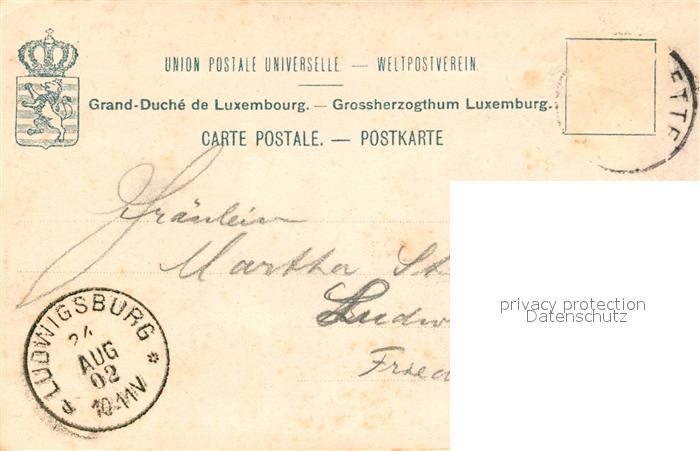 UNION POSTALE UNIVERSELLE. — WELTPOSTVEREIN.
Grand-Duché de Luxembourg. — Grossherzogthum Luxemburg.
CARTE POSTALE. — POSTKARTE
ETTE
Fräulein
Martha St
Ludw
Fried
LUDWIGSBURG
24
AUG
02
10-11V
privacy protection
Datenschutz